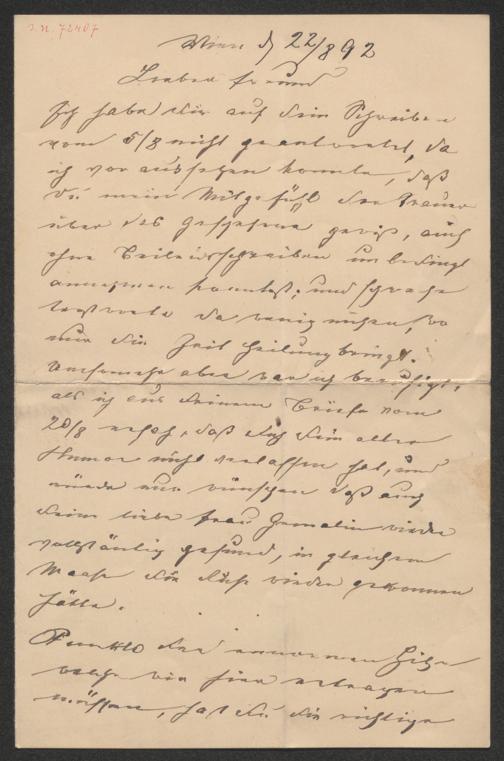 I.N. 72407
Wien d 22/8 892
Lieber Freund
Ich habe dir auf dein Schreiben
vom 5/8 nicht geantwortet, da
ich voraussehen konnte, daß
du mein Mitgefühl der Trauer
über das Geschehene gewiß, auch
ohne Beileidsschreiben unbedingt
annehmen konntest, und
Trostworte da wenig nützen, wo
nur die Zeit Heilung bringt.
Umsomehr aber war ich beruhigt,
als ich aus deinem Briefe vom
20/8 ersah, daß dich dein alter
Humor nicht verlassen hat, und
würde nur wünschen daß auch
deine liebe Frau Gemalin wieder
vollständig gesund, in gleichem
Maase die Ruhe wieder gewonnen
hätte.
Punkto der enormen Hitze
welche wir hier ertragen
müssen, hast du die richtige